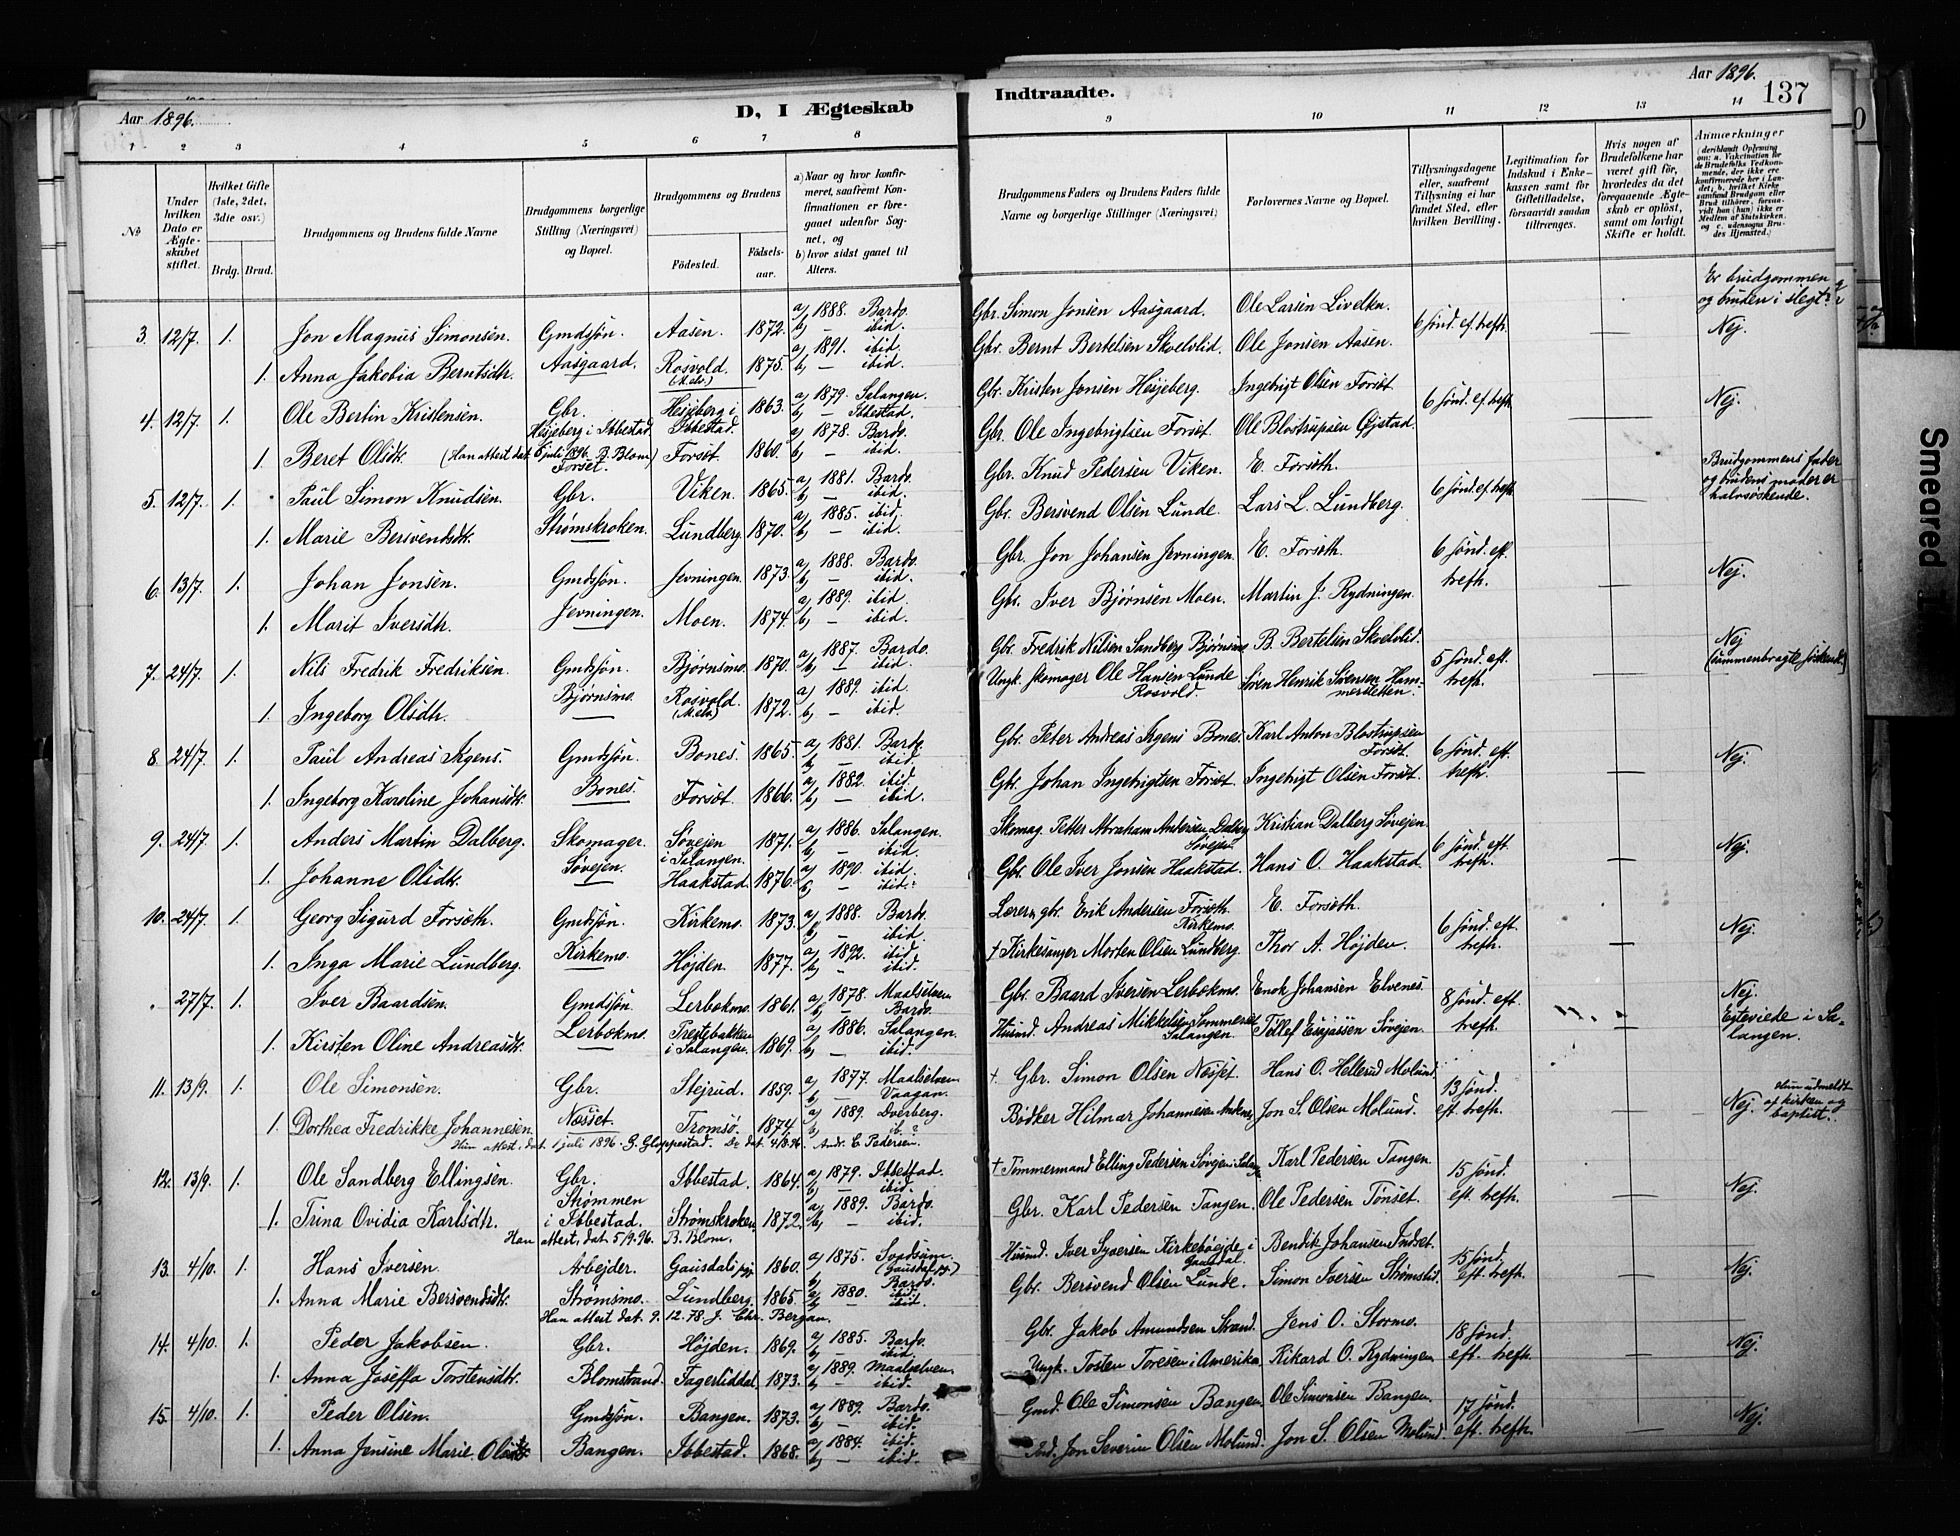 Aar 1896.
D, I Ægteskab
Indtraadte.
Aar 1896.
137
1 2 3 4 5 6 7 8 9 10 11 12 13 14
No
Under hvilken Dato er Ægteskabet stiftet.
Hvilket Gifte (1ste, 2det, 3die osv.)
Brdg. Brud.
Brudgommens og Brudens fulde Navne
Brudgommens borgerlige Stilling (Næringsvei) og Bopæl.
Brudgommens og Brudens
Födested.
Födselsaar.
a) Naar og hvor konfirmeret, saafremt Konfirmationen er foregaaet udenfor Sognet, og
b) hvor sidst gaaet til Alters.
Brudgommens Faders og Brudens Faders fulde Navne og borgerlige Stillinger (Næringsvei)
Forlovernes Navne og Bopæl.
Tillysningsdagene eller, saafremt Tillysning ei har fundet Sted, efter hvilken Bevilling.
Legitimation for Indskud i Enkekassen samt for Giftetilladelse, forsaavidt saadan tiltrænges.
Hvis nogen af Brudefolkene har været gift för, hvorledes da det foregaaende Ægteskab er oplöst, samt om lovligt Skifte er holdt.
Anmærkninger
Er brudgommen og bruden i slegt?
3. 12/7. 1. Jon Magnus Simonsen. Gmdsjøn. Aasen. 1872. a) 1888. Bardo. b) — ibid. Gbr. Simon Jonsen Aasgaard. Ole Larsen Livelten. 6 sønd. ef. trefh. — Nej.
1. Anna Jakobia Berntsdtr. Aasgaard. Rosvold. (M.elv.) 1875. a) 1891. ibid. b) — ibid. Gbr. Bernt Bertelsen Skoelvlid. Ole Jonsen Aasen.
4. 12/7. 1. Ole Bertin Kristensen. Gbr. Hesjeberg i Ibbestad. 1863. a) 1879. Salangen. b) — Ibbestad. Gbr. Kristen Jonsen Hesjeberg. Ingebrigt Olsen Forsøt. 6 sønd. ef. trefh. — Nej.
Hesjeberg i Ibbestad.
1. Beret Olsdtr. (Han attest dat. 5 juli 1896. B. Blom) Forset. Forsøt. 1860. a) 1878. Bardo. b) — ibid. Gbr. Ole Ingebrigtsen Forset. Ole Blostrupsen Øjstad.
5. 12/7. 1. Paul Simon Knudsen. Gbr. Viken. 1865. a) 1881. Bardo. b) — ibid. Gbr. Knud Pedersen Viken. E. Forsøth. 6 sønd. ef. trefh. — Brudgommens fader og brudens moder er halvsøskende.
1. Marie Bersvendsdtr. Strømskroken. Lundberg. 1870. a) 1885. ibid. b) — ibid. Gbr. Bersvend Olsen Lunde. Lars L. Lundberg.
6. 13/7. 1. Johan Jonsen. Gmdsjøn. Jevningen. 1873. a) 1888. Bardo. b) — ibid. Gbr. Jon Johansen Jevningen. E. Forsøth. 6 sønd. ef. trefh. — Nej.
1. Marit Iversdtr. Jevningen. Moen. 1874. a) 1889. ibid. b) — ibid. Gbr. Iver Bjørnsen Moen. Martin J. Rydningen.
7. 24/7. 1. Nils Fredrik Fredriksen. Gmdsjøn. Bjørnsmo. 1870. a) 1887. Bardo. b) — ibid. Gbr. Fredrik Nilsen Sandberg Bjørnsmo. B. Bertelsen Skoelvlid. 5 sønd. eft. trefh. — Nej (sammenbragte søskende)
1. Ingeborg Olsdtr. Bjørnsmo. Rosvold. (M.elv) 1872. a) 1889. ibid. b) — ibid. Ungk. Skomager Ole Hansen Lunde Rosvold. Søren Henrik Sørensen Hammersletten.
8. 24/7. 1. Paul Andreas Agens. Gmdsjøn. Bones. 1865. a) 1881. Bardo. b) — ibid. Gbr. Peter Andreas Agens Bones. Karl Anton Blostrupsen Forsøt. 6 sønd. eft. trefh. — Nej.
1. Ingeborg Karoline Johansdtr. Bones. Forsøt. 1866. a) 1882. ibid. b) — ibid. Gbr. Johan Ingebrigtsen Forsøt. Ingebrigt Olsen Forsøt.
9. 24/7. 1. Anders Martin Dalberg. Skomager. Søvejen i Salangen. 1871. a) 1886. Salangen. b) — ibid. Skomag. Petter Abraham Andersen Dalberg Søvejen. Kristian Dalberg Søvejen. 6 sønd. eft. trefh. — Nej.
1. Johanne Olsdtr. Søvejen. Haakstad. 1876. a) 1890. ibid. b) — ibid.? Gbr. Ole Iver Jonsen Haakstad. Hans O. Haakstad.
10. 24/7. 1. Georg Sigurd Forsøth. Gmdsjøn. Kirkemo. 1873. a) 1888. Bardo. b) — ibid. Lærer, gbr. Erik Andersen Forsøth Kirkemo. E. Forsøth. 6 sønd. eft. trefh. — Nej.
1. Inga Marie Lundberg. Kirkemo. Højden. 1877. a) 1892. ibid. b) - ibid. † Kirkesanger Morten Olsen Lundberg. Thor A. Højden.
27/7. 1. Iver Baardsen. Gmdsjøn. Lerbækmo. 1861. a) 1878. Maalselven b) — Bardo. Gbr. Baard Iversen Lerbækmo. Enok Johansen Elvenes. 8 sønd. eft. trefh. — Nej. Egteviede i Salangen.
1. Kirsten Oline Andreasdtr. Lerbækmo. Prestebakken i Salangen. 1869. a) 1886. Salangen. b) — ibid. Husmd. Andreas Mikkelsen Sommerset Salangen. Tollef Esajassen Søvejen.
11. 13/9. 1. Ole Simonsen. Gbr. Stejrud. 1859. a) 1877. Maalselven b) — Vaagan. † Gbr. Simon Olsen Næsset. Hans O. Hellerud Molund. 13 sønd. eft. trefh. — Nej. Hun udmeldt af kirken og baptist.
1. Dorthea Fredrikke Johannesen. Næsset. Tromsø. 1874. a) 1889. Dverberg. b) ib.? Bødker Hilmar Johannesen Andenes. Jon S. Olsen Molund.
Hun attest. dat. 1 juli 1896. G. Gloppestad. Do dat. 4/8.96. Andr. C. Pedersen.
12. 13/9. 1. Ole Sandberg Ellingsen. Gbr. Ibbestad. 1864. a) 1879. Ibbestad. b) — ibid. † Tømmermand Elling Pedersen Søvejen i Salang. Karl Pedersen Tangen. 15 sønd. eft. trefh. — Nej.
1. Trina Ovidia Karlsdtr. Strømmen i Ibbestad. Strømskroken. 1872. a) 1889. Bardo. b) — ibid. Gbr. Karl Pedersen Tangen. Ole Pedersen Tønset.
Han attest. dat. 5/9.96. B. Blom.
13. 4/10. 1. Hans Iversen. Arbejder. Gausdals pgj. 1860. a) 1875. Svadsum. (Gausdal pgj.) b) Bardo. Husmd. Iver Syversen Kirkebøejde i Gausdal. Bendik Johansen Indset. 15 sønd. eft. trefh. — Nej.
1. Anna Marie Bersvendsdtr. Strømsmo. Lundberg. 1865. a) 1880. ibid. b) — ibid. Gbr. Bersvend Olsen Lunde. Simon Iversen Strømslid.
Han attest dat. 9. 12. 78. J. Chr. Bergan.
14. 4/10. 1. Peder Jakobsen. Gbr. Højden. 1869. a) 1885. Bardo. b) — ibid. Gbr. Jakob Amundsen Strand. Jens O. Stormo. 18 sønd. eft. trefh. — Nej.
1. Anna Joseffa Torstensdtr. Blomstrand. Fagerliddal. 1873. a) 1889. Maalselven b) — ibid. Ungk. Tosten Toresen i Amerika. Rikard O. Rydningen.
15. 4/10. 1. Peder Olsen. Gmdsjøn. Bangen. 1873. a) 1889. Bardo. b) — ibid. Gmd. Ole Simonsen Bangen. Ole Simonsen Bangen. 17 sønd. eft. trefh. — Nej.
1. Anna Jensine Marie Olsdtr. Bangen. Ibbestad. 1868. a) 1884. ibid. b) — ibid. Jon Severin Olsen Molund. Jon S. Olsen Molund.
Smeared 1